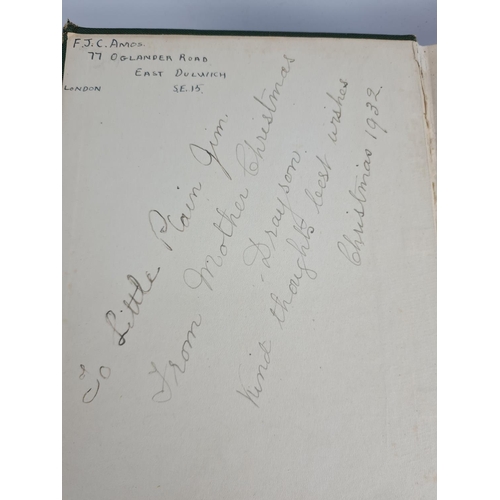 F.J.C. AMOS.
77 OGLANDER ROAD
EAST DULWICH
LONDON S.E.15.
To Little Plain Jim.
From Mother Christmas
- Drayson.
Kind thoughts best wishes
Christmas 1932.